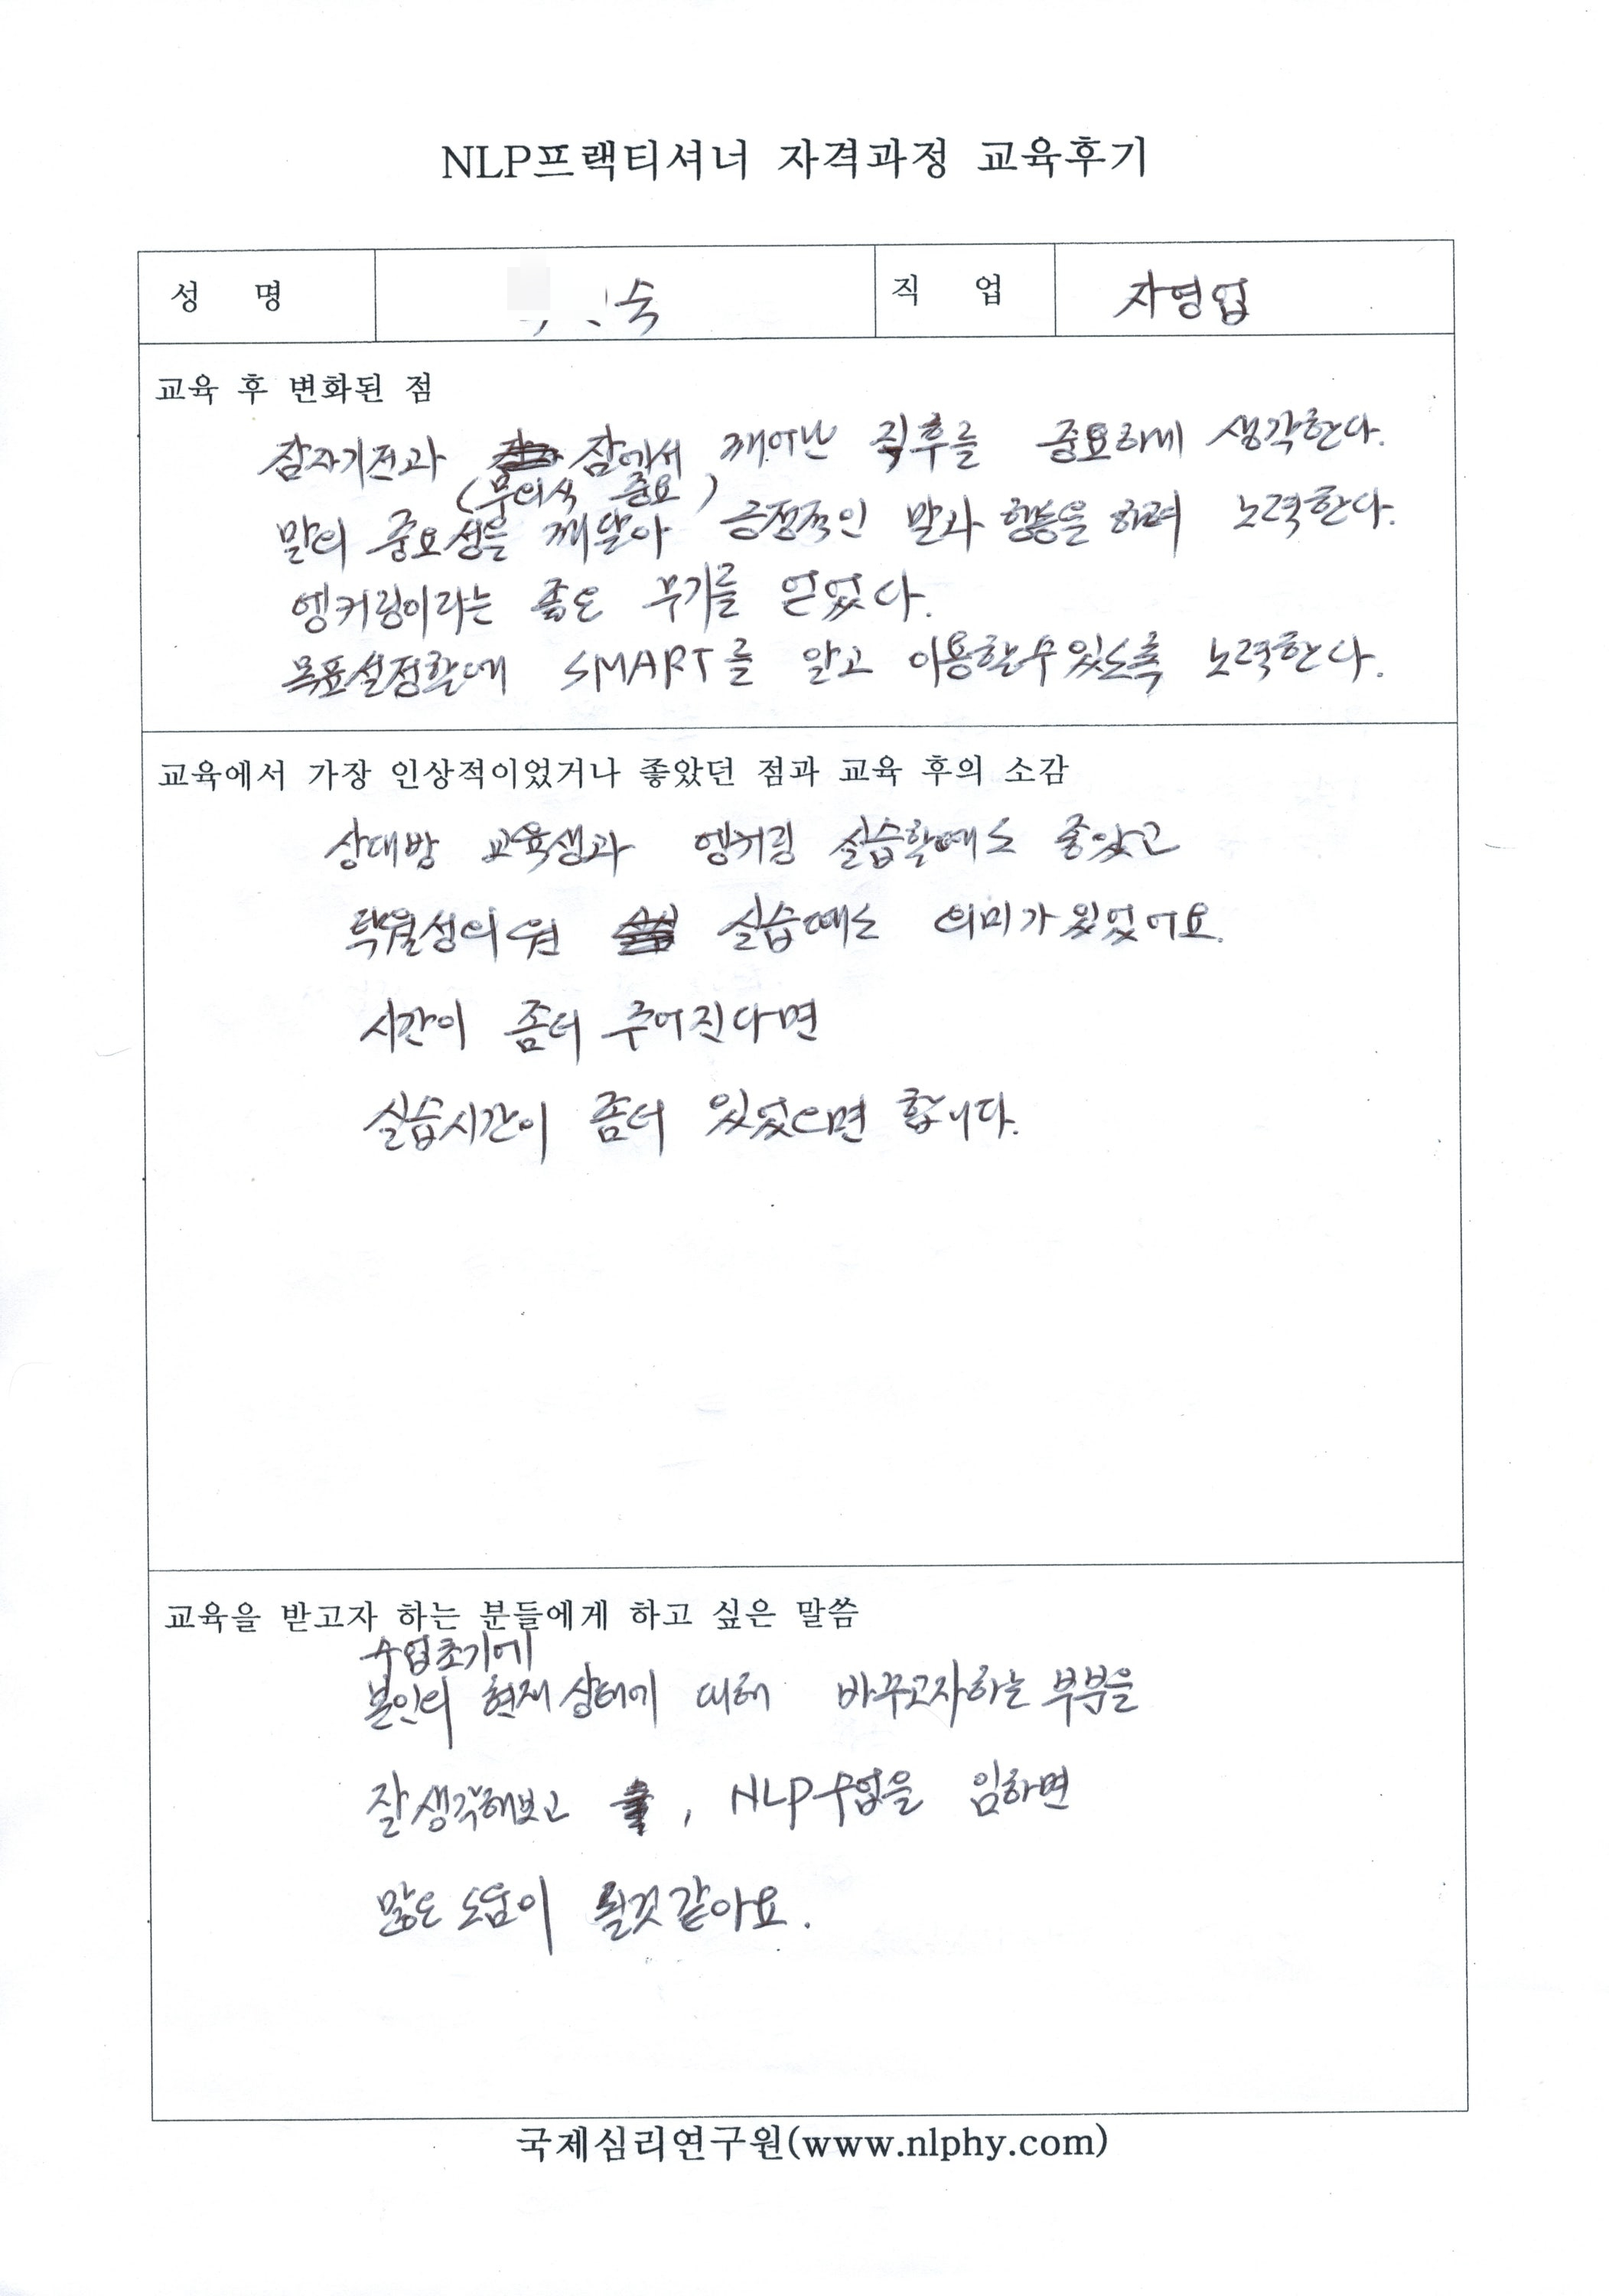 NLP프랙티셔너 자격과정 교육후기
성 명 숙 직 업 자영업
교육 후 변화된 점
잠자기전과 잠에서 깨어난 직후를 중요하게 생각한다.
(무의식 중요)
말의 중요성을 깨달아 긍정적인 말과 행동을 하려 노력한다.
엥커링이라는 좋은 무기를 얻었다.
목표설정할때 SMART를 알고 이용할수있도록 노력한다.
교육에서 가장 인상적이었거나 좋았던 점과 교육 후의 소감
상대방 교육생과 엥커링 실습할때도 좋았고
탁월성의 원 실습때도 의미가 있었어요.
시간이 좀더 주어진다면
실습시간이 좀더 있었으면 합니다.
교육을 받고자 하는 분들에게 하고 싶은 말씀
수업초기에
본인의 현재 상태에 대해 바꾸고자하는 부분을
잘 생각해보고 , NLP수업을 임하면
많은 도움이 될것 같아요.
국제심리연구원(www.nlphy.com)